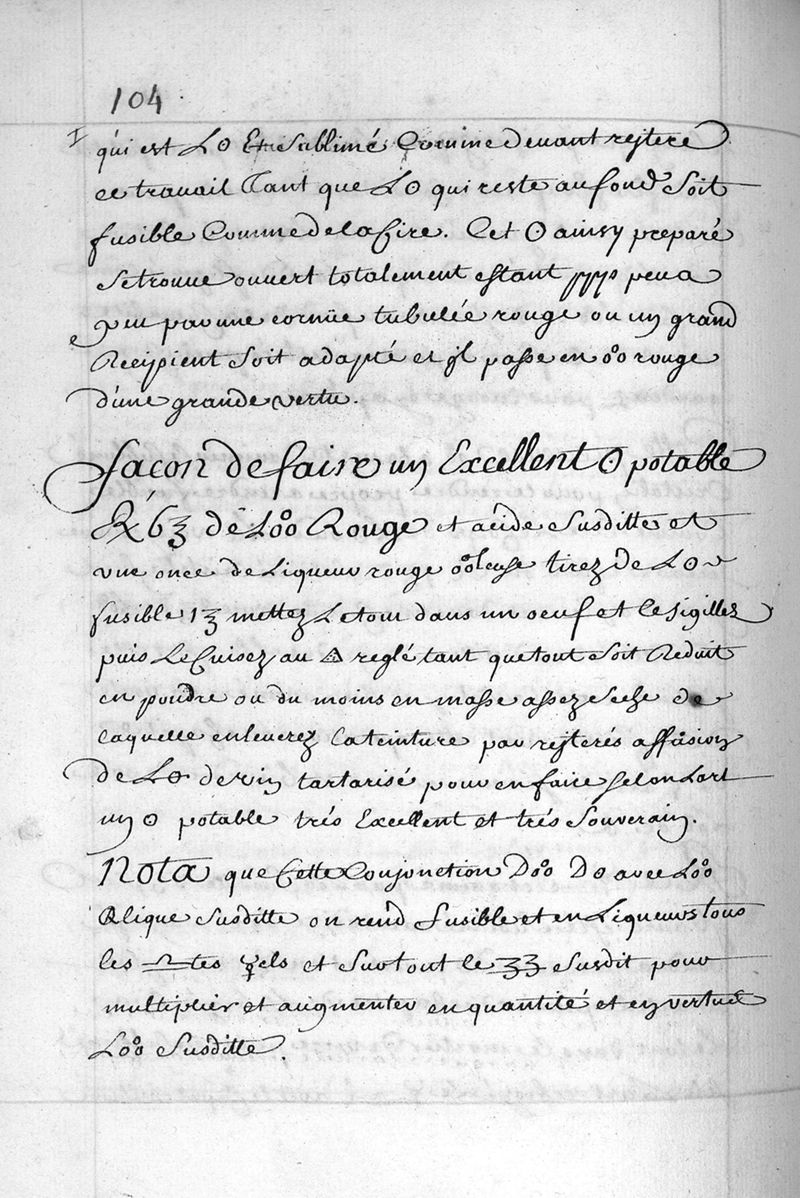 104
qui est L☉ Et Sublimé Comme devant rejtere
ce travail Tant que L☉ qui reste au fond Soit
fusible Comme de la Cire. Cet ☉ ainsy preparé
Se trouve ouvert totalement estant peu a
peu par une cornüe tubulée rouge ou un grand
Recipient Soit adapté et jl passe en o°o rouge
d'une grande vertu.
façon de faire un Excellent ☉ potable
℞ 6ʒ de Lo°o Rouge et acide Susditte et
vne once de Liqueur rouge o°oleuse tirez de L☉
fusible 1ʒ mettez Le tout dans un oeuf et le Sigillez
puis Le Cuisez au 🜂 reglé tant que tout Soit Reduit
en poudre ou du moins en masse assez Seche de
laquelle enleverez la teinture par rejterés affusion
de L☉ de vin tartarisé pour en faire Selon Lart
un ☉ potable trés Excellent et trés Souverain.
Nota que Cette Conjonction Do°o D☉ avec Lo°o
Rlique Susditte on rend fusible et en Liqueurs tous
les ♎tes ☿els et Surtout le ʒʒ Susdit pour
multiplier et augmenter en quantité et en vertue
Lo°o Susditte.